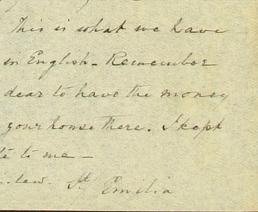 This is what we have
in English - Remember
dear to have the money
your house there. I kept
to me -
law. St. Emilia